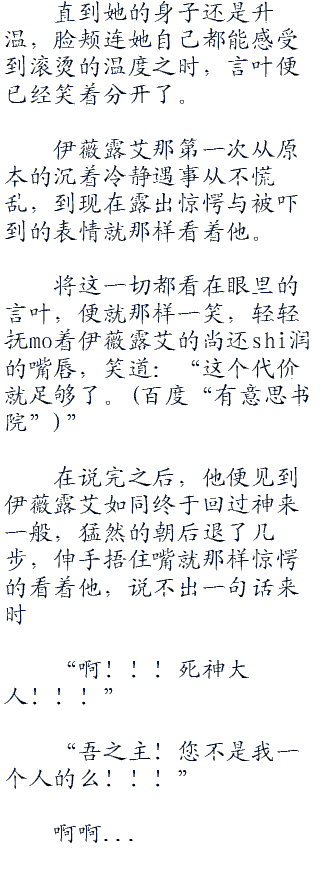 直到她的身子还是升
温，脸颊连她自己都能感受
到滚烫的温度之时，言叶便
已经笑着分开了。
伊薇露艾那第一次从原
本的沉着冷静遇事从不慌
乱，到现在露出惊愕与被吓
到的表情就那样看着他。
将这一切都看在眼里的
言叶，便就那样一笑，轻轻
抚mo着伊薇露艾的尚还shi润
的嘴唇，笑道：“这个代价
就足够了。(百度“有意思书
院”)”
在说完之后，他便见到
伊薇露艾如同终于回过神来
一般，猛然的朝后退了几
步，伸手捂住嘴就那样惊愕
的看着他，说不出一句话来
时
“啊！！！死神大
人！！！”
“吾之主！您不是我一
个人的么！！！”
啊啊...